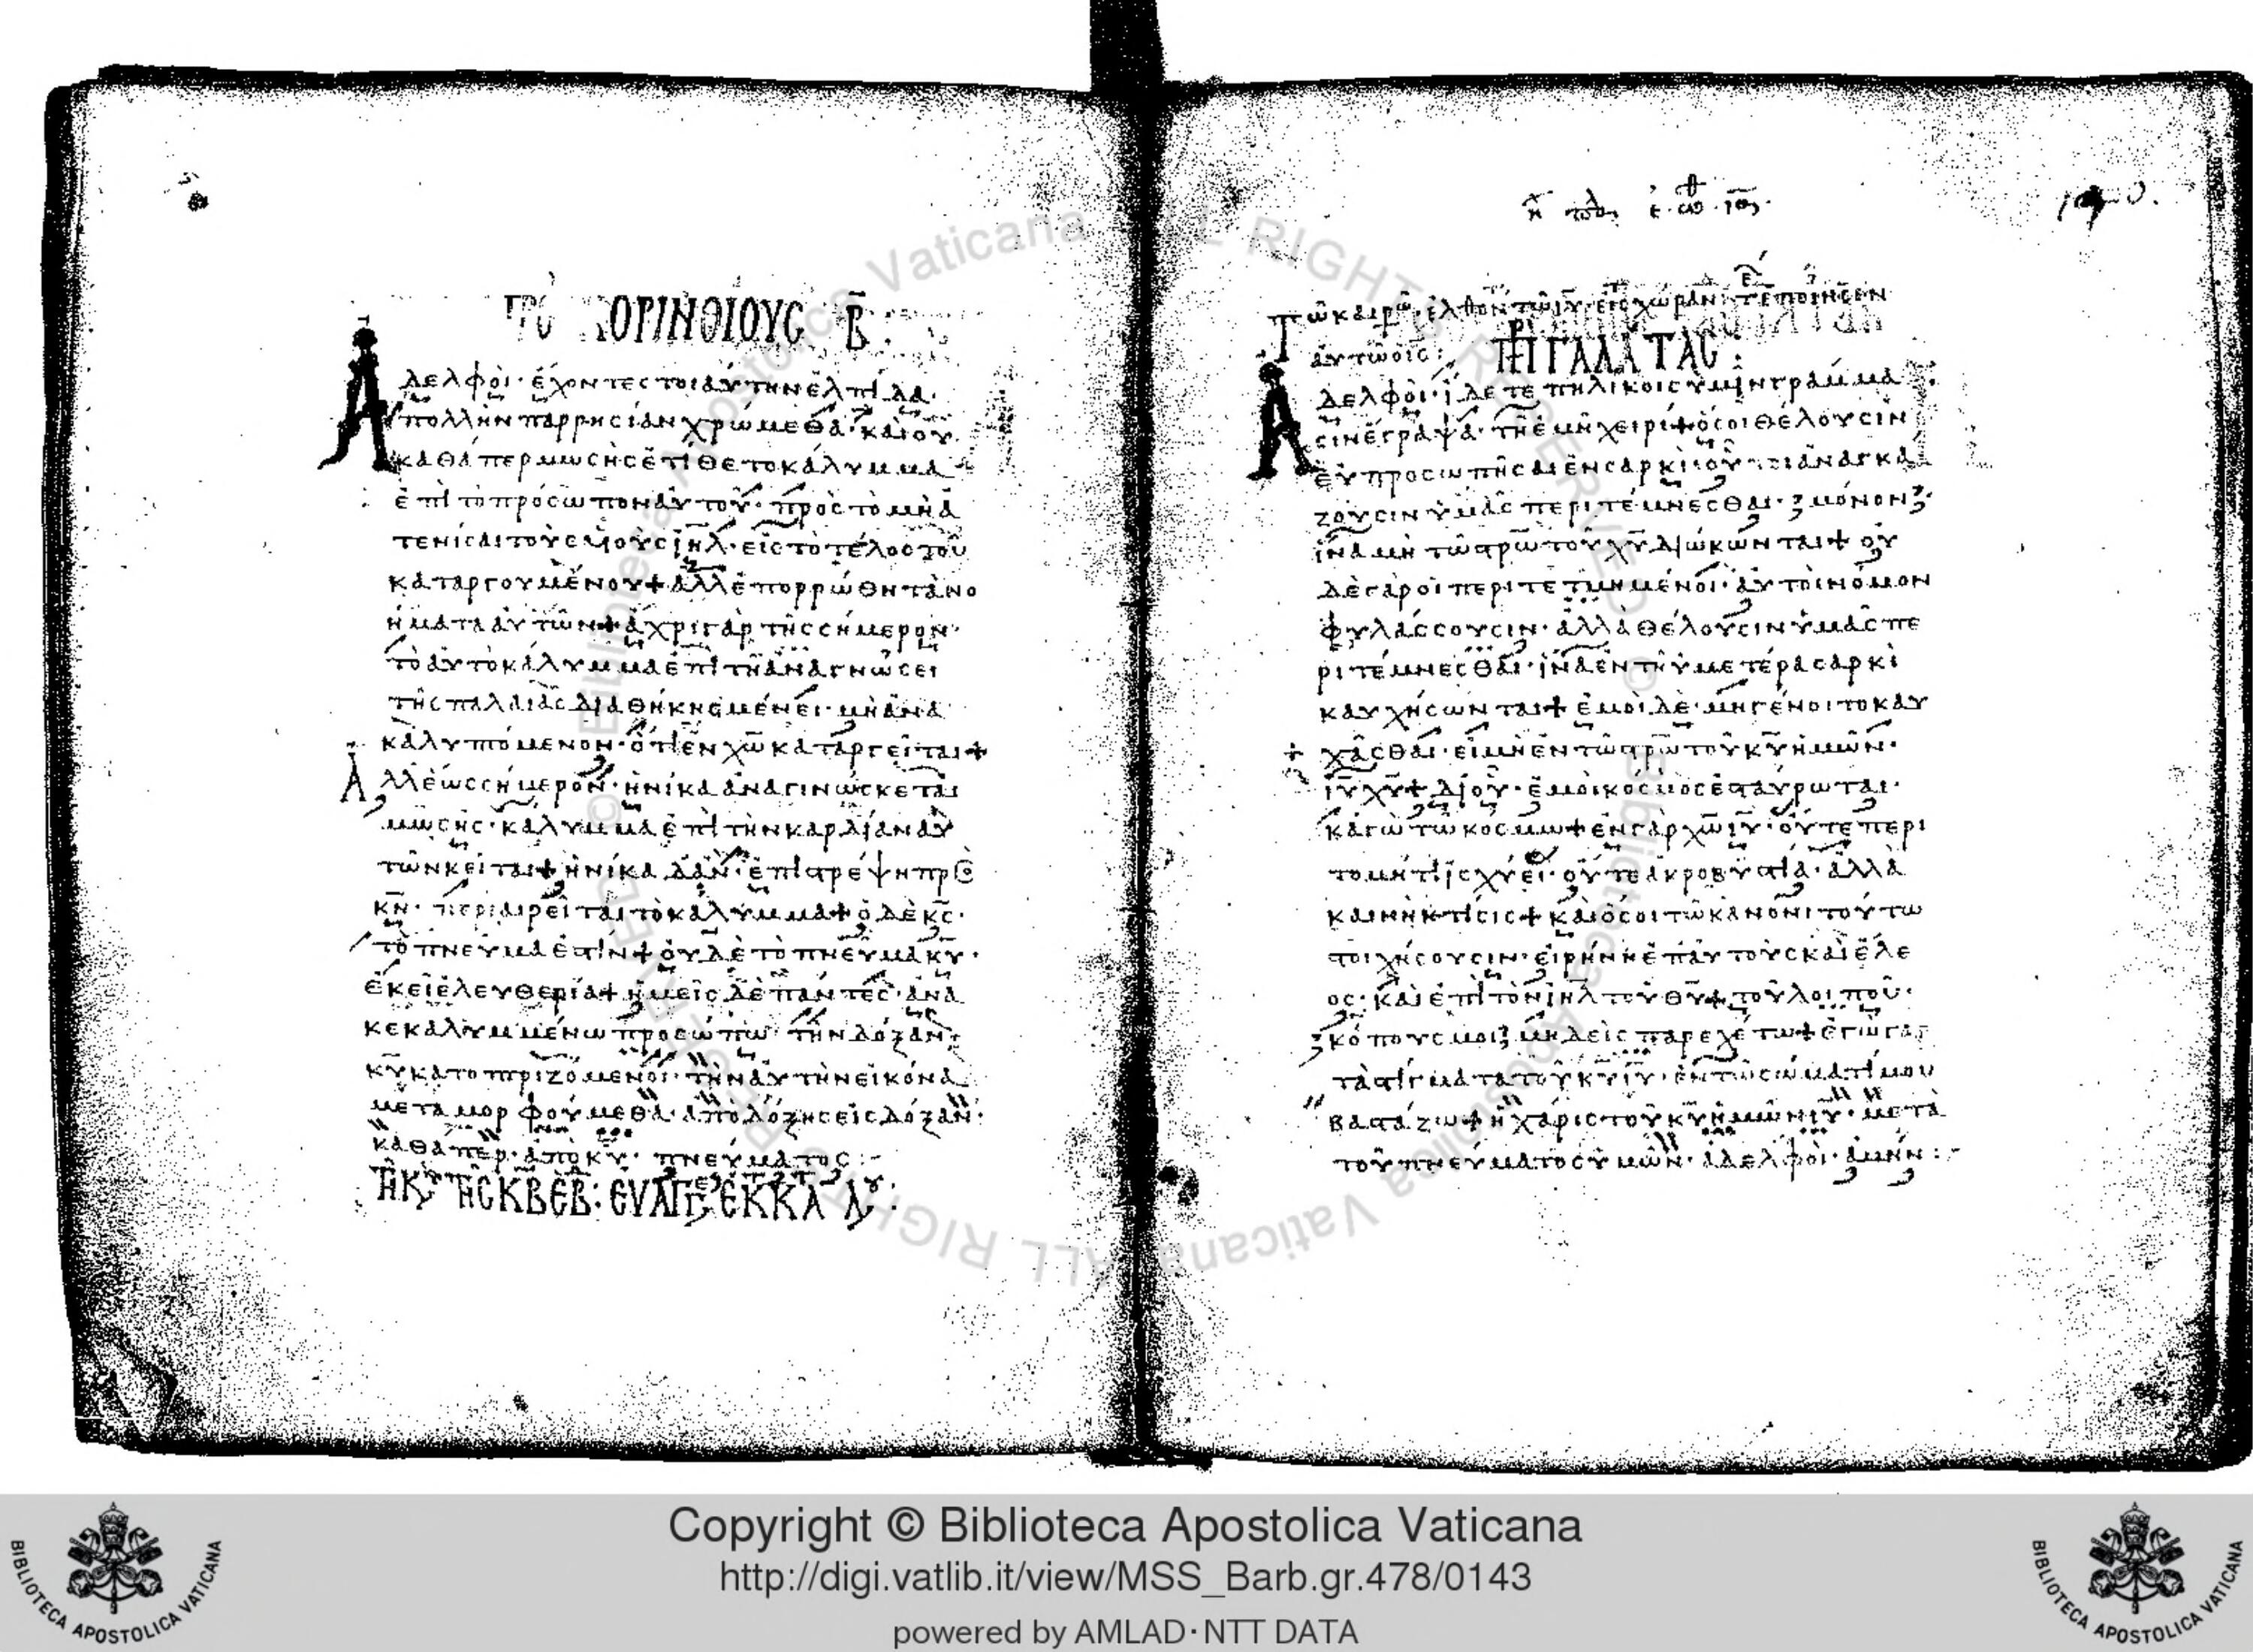 ΠΡΟ ΚΟΡΙΝΘΙΟΥC Β̅
Ἀδελφοὶ· ἔχοντες τοιαύτην ἐλπίδα·
πολλῆν παρρησίαν χρώμεθα· καὶ οὐ
καθάπερ μωσῆς ἐτίθε τὸ κάλυμμα
ἐπὶ τὸ πρόσωπον αὐτοῦ· πρὸς τὸ μὴ ἀ
τενίσαι τοὺς υἱοὺς ι̅η̅λ̅· εἰς τὸ τέλος τοῦ
καταργουμένου + ἀλλ ἐπορρώθη τὰ νο
ήματα αὐτῶν + ἄχρι γὰρ τῆς σήμερον·
τὸ αὐτὸ κάλυμμα ἐπὶ τῆ ἀναγνώσει
τῆς παλαιᾶς διαθήκης μένει· μὴ ἀνα
καλυπτόμενον· ὅτι ἐν χ̅ω̅ καταργεῖται +
Ἀλλ ἕως σήμερον· ἡνίκα ἀναγινώσκεται
μωσῆς· κάλυμμα ἐπὶ τὴν καρδίαν αὐ
τῶν κεῖται + ἡνίκα δ ἂν· ἐπιστρέψη πρὸς
κ̅ν̅· περιαιρεῖται τὸ κάλυμμα + ὁ δὲ κ̅ς̅·
τὸ πνεῦμα ἐστὶν + οὗ δὲ τὸ πνεῦμα κ̅υ̅·
ἐκεῖ ἐλευθερία + ἡμεῖς δὲ πάντες· ἀνα
κεκαλυμμένω προσώπω· τὴν δόξαν
κ̅υ̅ κατοπτριζόμενοι· τὴν αὐτὴν εἰκόνα
μεταμορφούμεθα· ἀπὸ δόξης εἰς δόξαν·
καθάπερ· ἀπὸ κ̅υ̅· πνεύματος:
τῶ καιρῶ· ἐλθόντι τῶ ι̅υ̅· εἰς χώραν
αὐτῶ οἰς:
ΠΡ ΓΑΛΑΤΑC:
Ἀδελφοὶ· ἴδετε πηλίκοις ὑμῖν γράμμα
σιν ἔγραψα· τῆ ἐμῆ χειρί + ὅσοι θέλουσιν
εὐπροσωπῆσαι ἐν σαρκὶ· οὗτοι ἀναγκά
ζουσιν ὑμᾶς περιτέμνεσθαι· μόνον
ἵνα μὴ τῶ στρω̅ τοῦ χ̅υ̅ διώκωνται + οὐ
δὲ γὰρ οἱ περιτετμημένοι· αὐτοὶ νόμον
φυλάσσουσιν· ἀλλὰ θέλουσιν ὑμᾶς πε
ριτέμνεσθαι· ἵνα ἐν τῆ ὑμετέρα σαρκὶ
καυχήσωνται + ἐμοὶ δὲ· μὴ γένοιτο καυ
χᾶσθαι· εἰ μὴ ἐν τῶ στρω̅ τοῦ κ̅υ̅ ἡμῶν·
ι̅υ̅ χ̅υ̅ + δι οὗ· ἐμοὶ κόσμος ἐσταύρωται·
κἀγὼ τῶ κόσμω + ἐν γὰρ χ̅ω̅ ι̅υ̅· οὔτε περι
τομή τι ἰσχύει· οὔτε ἀκροβυστία· ἀλλὰ
καινὴ κτίσις + καὶ ὅσοι τῶ κανόνι τούτω
στοιχήσουσιν· εἰρήνη ἐπ αὐτοὺς καὶ ἔλε
ος· καὶ ἐπὶ τὸν ι̅η̅λ̅ τοῦ θ̅υ̅ + τοῦ λοιποῦ·
κόπους μοι μηδεὶς παρεχέτω + ἐγὼ γὰρ
τὰ στίγματα τοῦ κ̅υ̅ ι̅υ̅· ἐν τῶ σώματί μου
βαστάζω + ἡ χάρις τοῦ κ̅υ̅ ἡμῶν ι̅υ̅· μετὰ
τοῦ πνεύματος ὑμῶν· ἀδελφοὶ· ἀμήν:
Copyright © Biblioteca Apostolica Vaticana
http://digi.vatlib.it/view/MSS_Barb.gr.478/0143
powered by AMLAD·NTT DATA
BIBLIOTECA APOSTOLICA VATICANA
BIBLIOTECA APOSTOLICA VATICANA